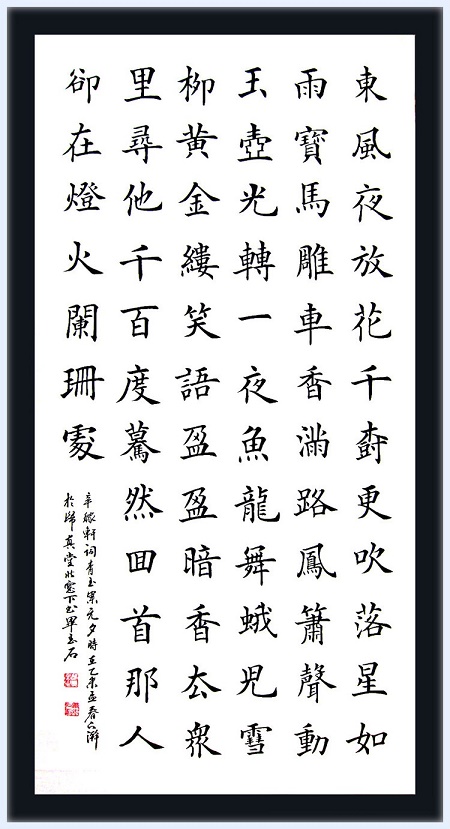 東風夜放花千尌更吹落星如
雨寶馬雕車香滿路鳳簫聲動
玉壺光轉一夜魚龍舞蛾兒雪
柳黃金縷笑語盈盈暗香去眾
里尋他千百度驀然回首那人
卻在燈火闌珊處
辛稼軒詞青玉案元夕時在乙未孟春
於歸真堂北窗下